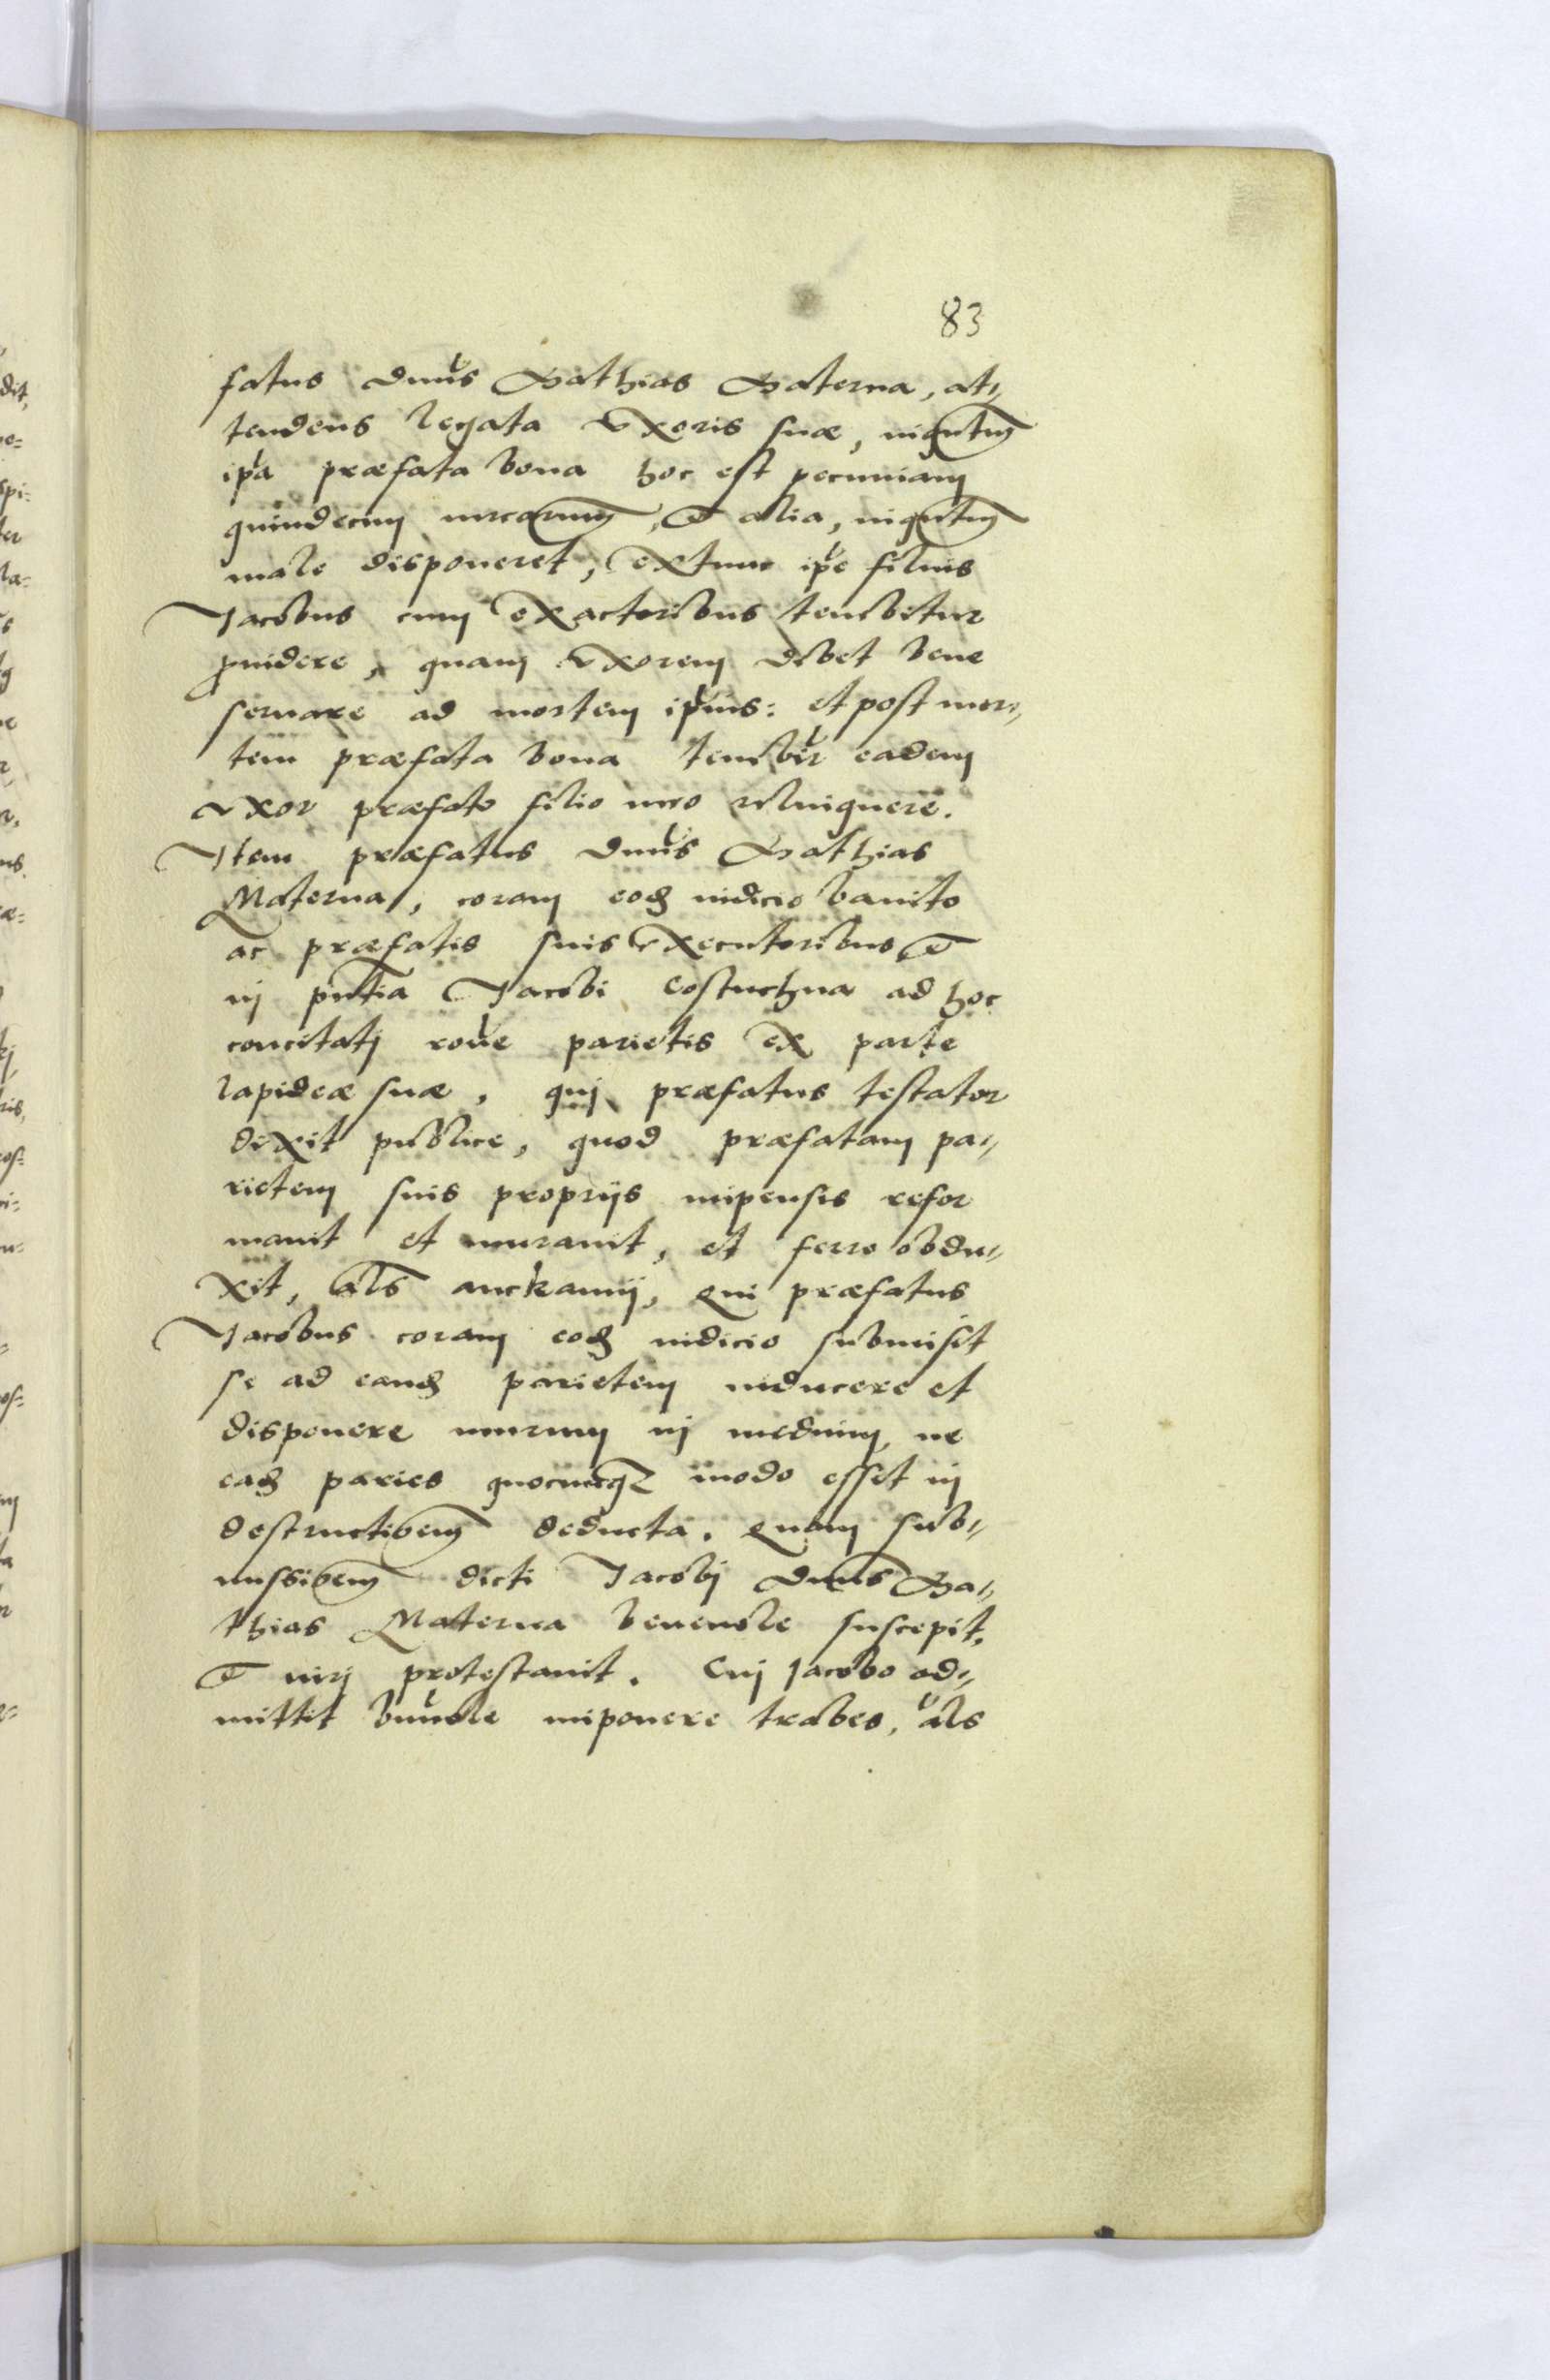 83
fatus dnus Mathias Materna, at,,
tendens legata uxoris suæ, inqntm
ipa præfata bona hoc est pecuniam
quindecim mrcarum, et alia, inqntm
male disponeret, extunc ipe filius
Jacobus cum exactoribus tenebitur
puidere, quam uxorem debet bene
seruare ad mortem ipius: et post mor,,
tem præfata bona tenebir eadem
uxor præfato filio meo relinquere.
Item præfatus dnus Mathias
Materna, coram eod iudicio banito
ac præfatis suis executoribus et
in pntia Jacobi Costuchna ad hoc
concitatj rone parietis ex parte
lapideæ suæ, quj præfatus testator
dixit publice, quod præfatam pa,,
rietem suis proprijs impensis refor
mauit et murauit, et ferro obdu,,
xit, als anckamij, Qui præfatus
Jacobus coram eod iudicio submisit
se ad eand parietem inducere et
disponere murum in medium, ne
ead paries quocunqz modo esset in
destructioem deducta. Quam sub,,
missioem dicti Jacobj dnus Ma,,
thias Materna beneuole suscepit,
et protestauit. Cuj Jacobo ad,,
mittit bnuole imponere trabes, als
dit,